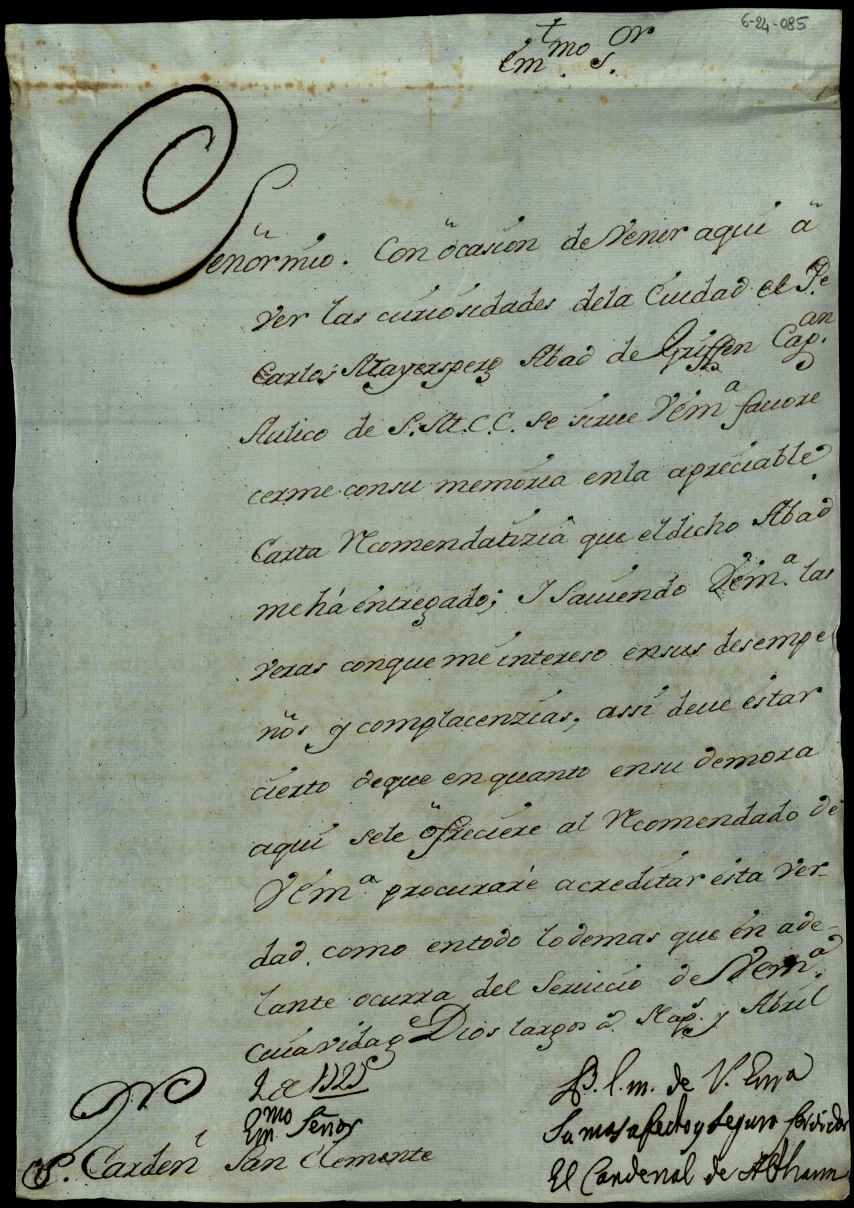 6-24-085
Em.mo S.or
Señor mio. Con ocasion de Venir aqui â
ver las curiosidades dela Ciudad el P.e
Carlos Mayersperg Abad de Griffen Cap.an
Aulico de S.M.C.C. se sirue VEm.a fauore
cerme consu memoria enla apreciable
Carta Recomendatizia que eldicho Abad
me há entregado; I Sauiendo VEm.a las
veras conque me intereso ensus desempe
ños y complacenzias, assi deue estar
cierto deque en quanto ensu demora
aqui sele ofreciere al Recomendado de
VEm.a procuraré acreditar esta ver-
dad, como entodo lodemas que en ade-
lante ocurra del Seruicio de VEm.a
cuia vida g.e Dios largos a.s Nap.s y Abril
2 de 1725
B. l. m. de V. Em.a
Em.mo Señor
Su mas afecto y seguro seruidor
S. Carden.l San Clemente
El Cardenal de Althann